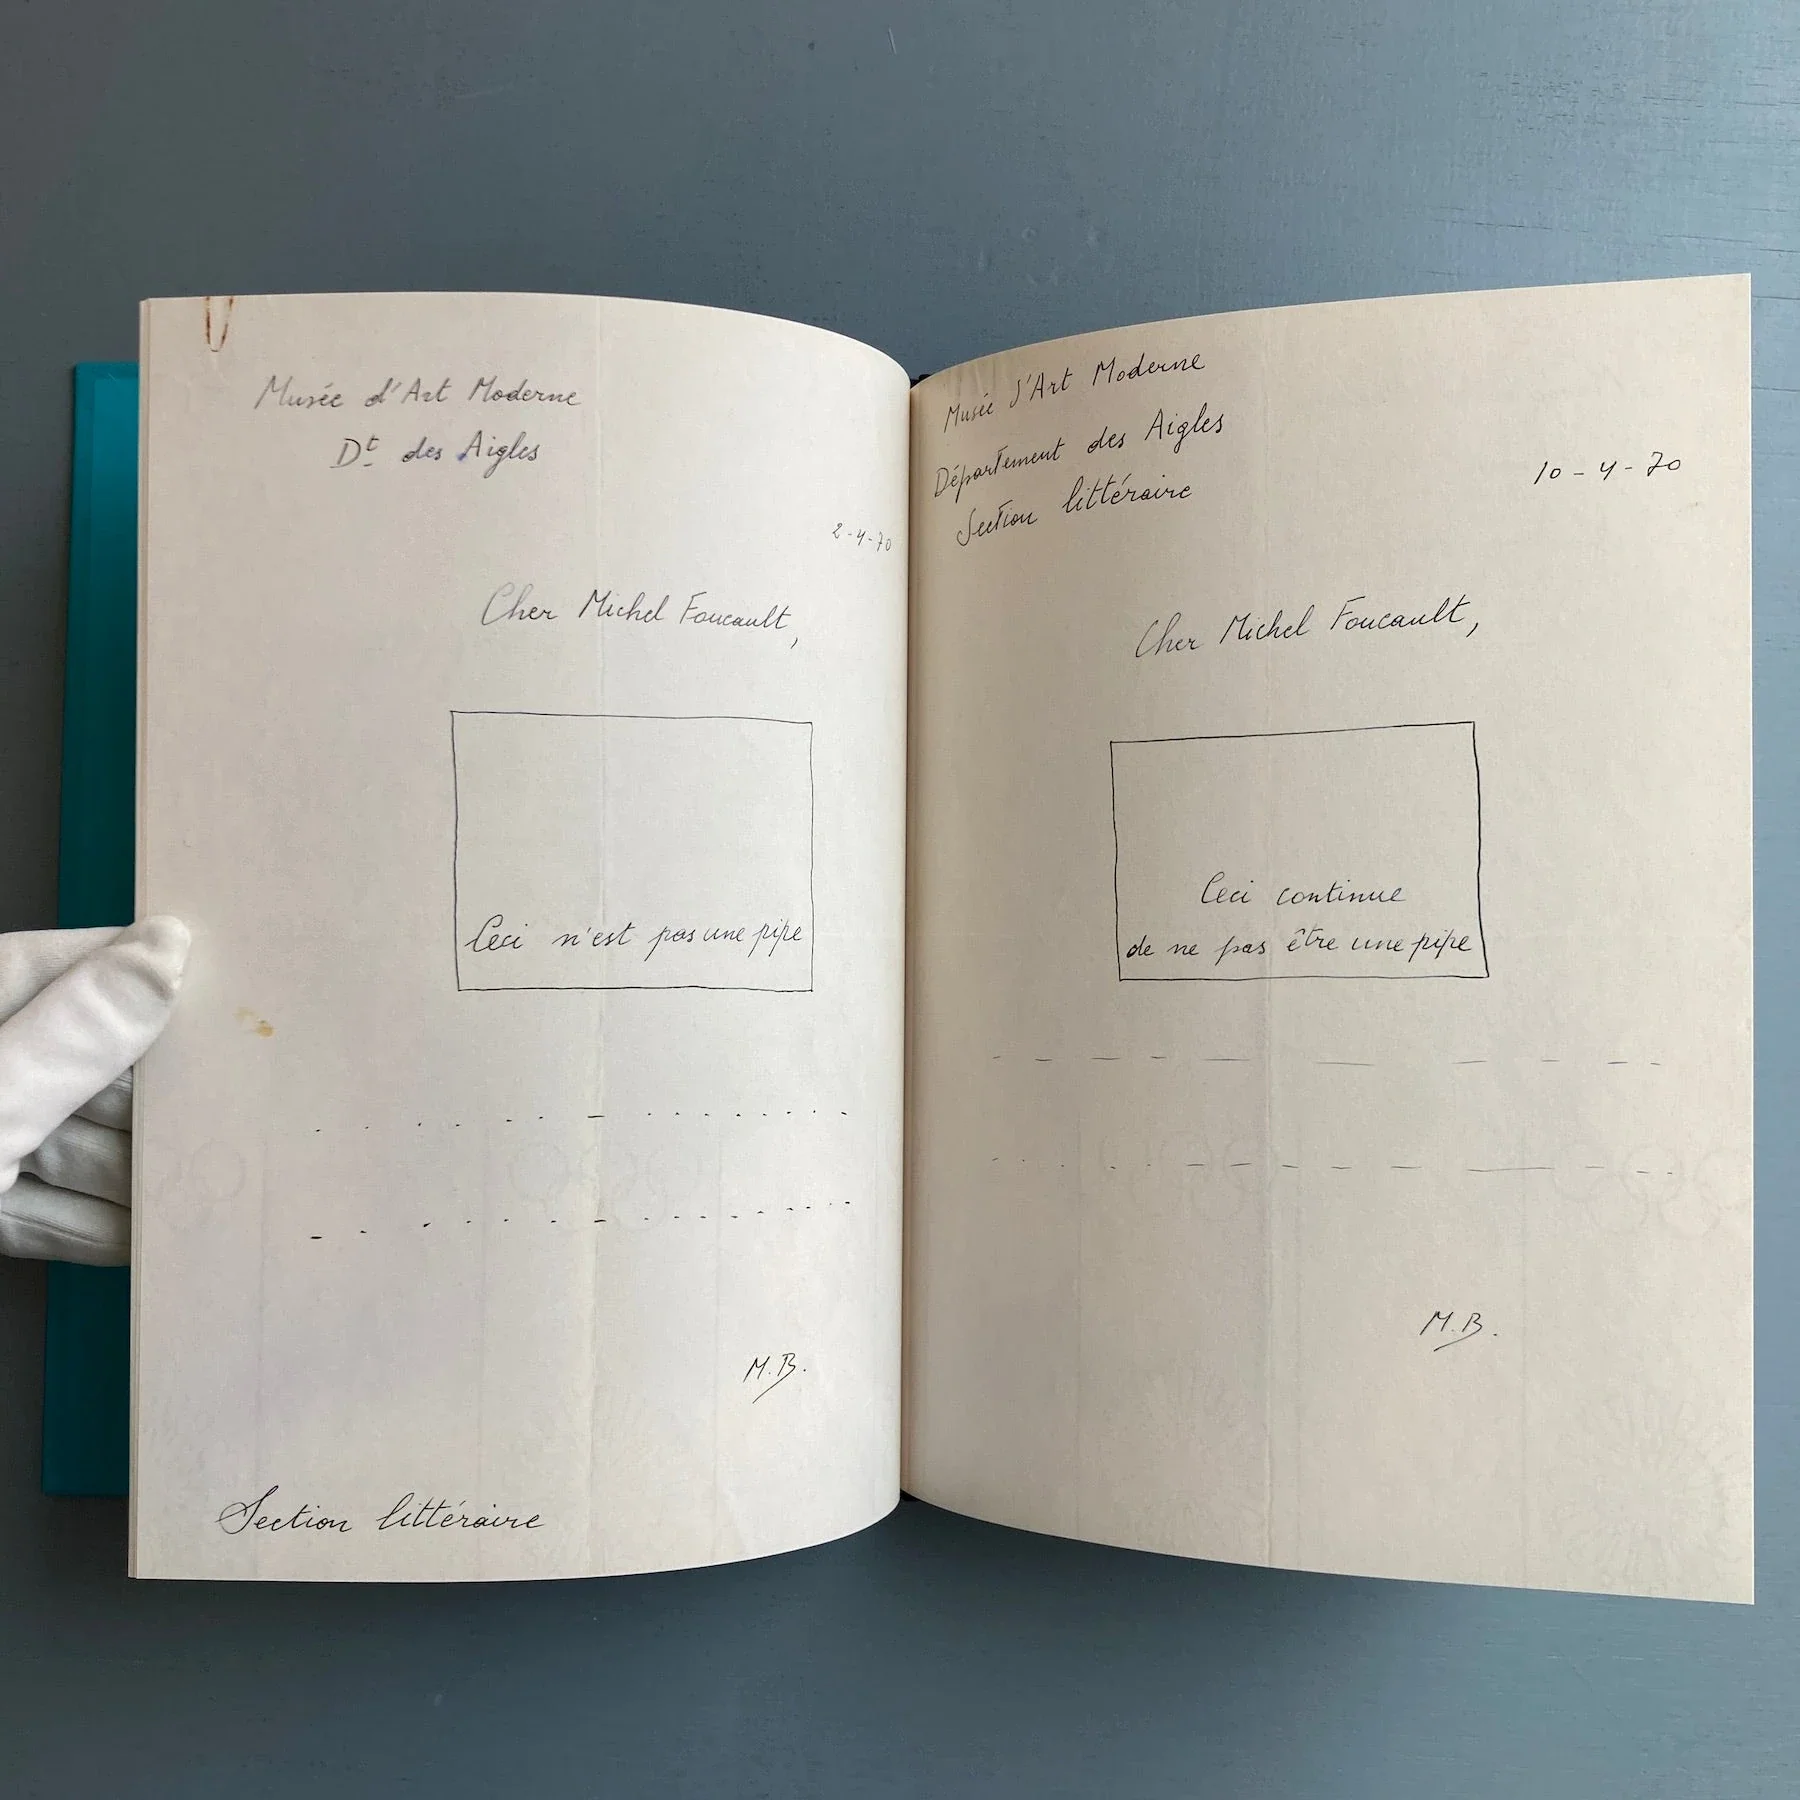 Musée d'Art Moderne
Dt des Aigles
2-4-70
Cher Michel Foucault,
Ceci n'est pas une pipe
M.B.
Section littéraire
Musée d'Art Moderne
Département des Aigles
Section littéraire
10-4-70
Cher Michel Foucault,
Ceci continue
de ne pas être une pipe
M.B.